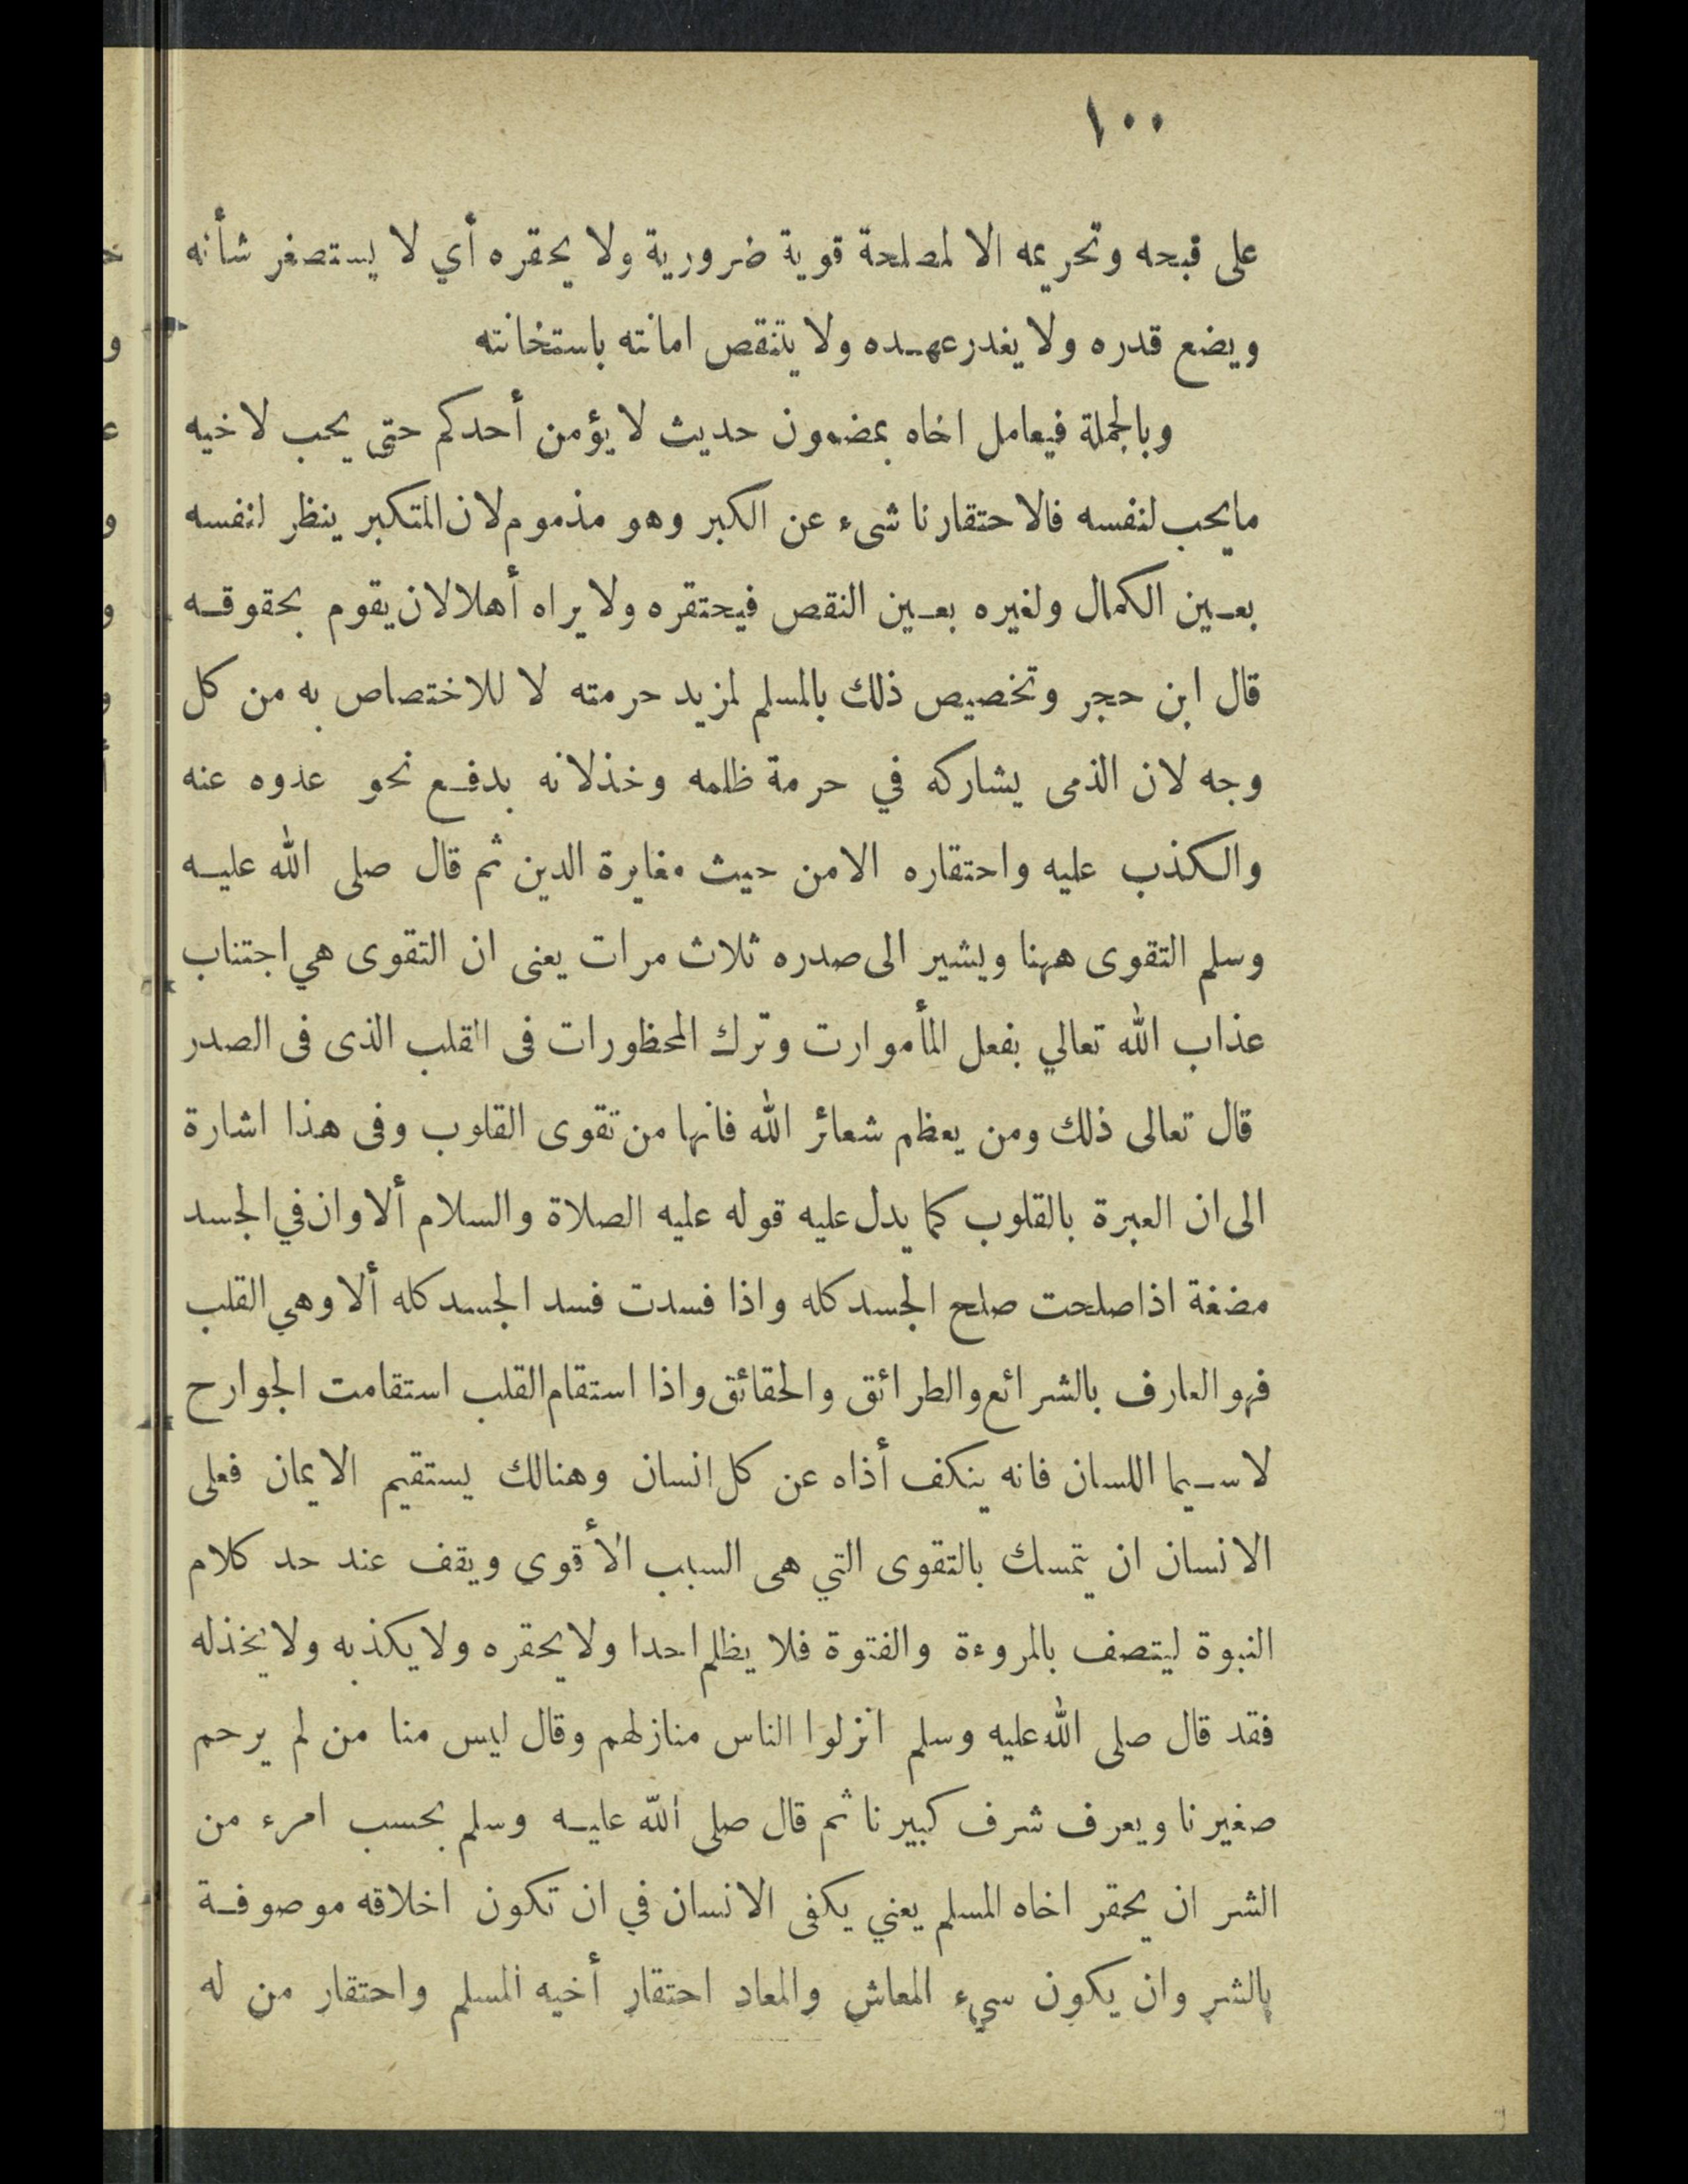 ١٠٠
على قبحه وتحريمه الا لمصلحة قوية ضرورية ولا يحقره أي لا يستصغر شأنه
ويضع قدره ولا يغدر عهده ولا يتنقص امانته باستخانته
وبالجملة فيعامل اخاه بمضمون حديث لا يؤمن أحدكم حتى يحب لاخيه
مايحب لنفسه فالاحتقار ناشىء عن الكبر وهو مذموم لان المتكبر ينظر لنفسه
بعين الكمال ولغيره بعين النقص فيحتقره ولا يراه أهلا لان يقوم بحقوقه
قال ابن حجر وتخصيص ذلك بالمسلم لمزيد حرمته لا للاختصاص به من كل
وجه لان الذمى يشاركه في حرمة ظلمه وخذلانه بدفع نحو عدوه عنه
والكذب عليه واحتقاره الا من حيث مغايرة الدين ثم قال صلى الله عليه
وسلم التقوى ههنا ويشير الى صدره ثلاث مرات يعنى ان التقوى هي اجتناب
عذاب الله تعالي بفعل المأموارت وترك المحظورات فى القلب الذى فى الصدر
قال تعالى ذلك ومن يعظم شعائر الله فانها من تقوى القلوب وفى هذا اشارة
الى ان العبرة بالقلوب كما يدل عليه قوله عليه الصلاة والسلام ألا وان في الجسد
مضغة اذا صلحت صلح الجسد كله واذا فسدت فسد الجسد كله ألا وهي القلب
فهو العارف بالشرائع والطرائق والحقائق واذا استقام القلب استقامت الجوارح
لا سيما اللسان فانه ينكف أذاه عن كل انسان وهنالك يستقيم الايمان فعلى
الانسان ان يتمسك بالتقوى التي هى السبب الأقوي ويقف عند حد كلام
النبوة ليتصف بالمروءة والفتوة فلا يظلم احدا ولا يحقره ولا يكذبه ولا يخذله
فقد قال صلى الله عليه وسلم انزلوا الناس منازلهم وقال ليس منا من لم يرحم
صغيرنا ويعرف شرف كبيرنا ثم قال صلى الله عليه وسلم بحسب امرء من
الشر ان يحقر اخاه المسلم يعني يكفى الانسان في ان تكون اخلاقه موصوفة
بالشر وان يكون سيء المعاش والمعاد احتقار أخيه المسلم واحتقار من له